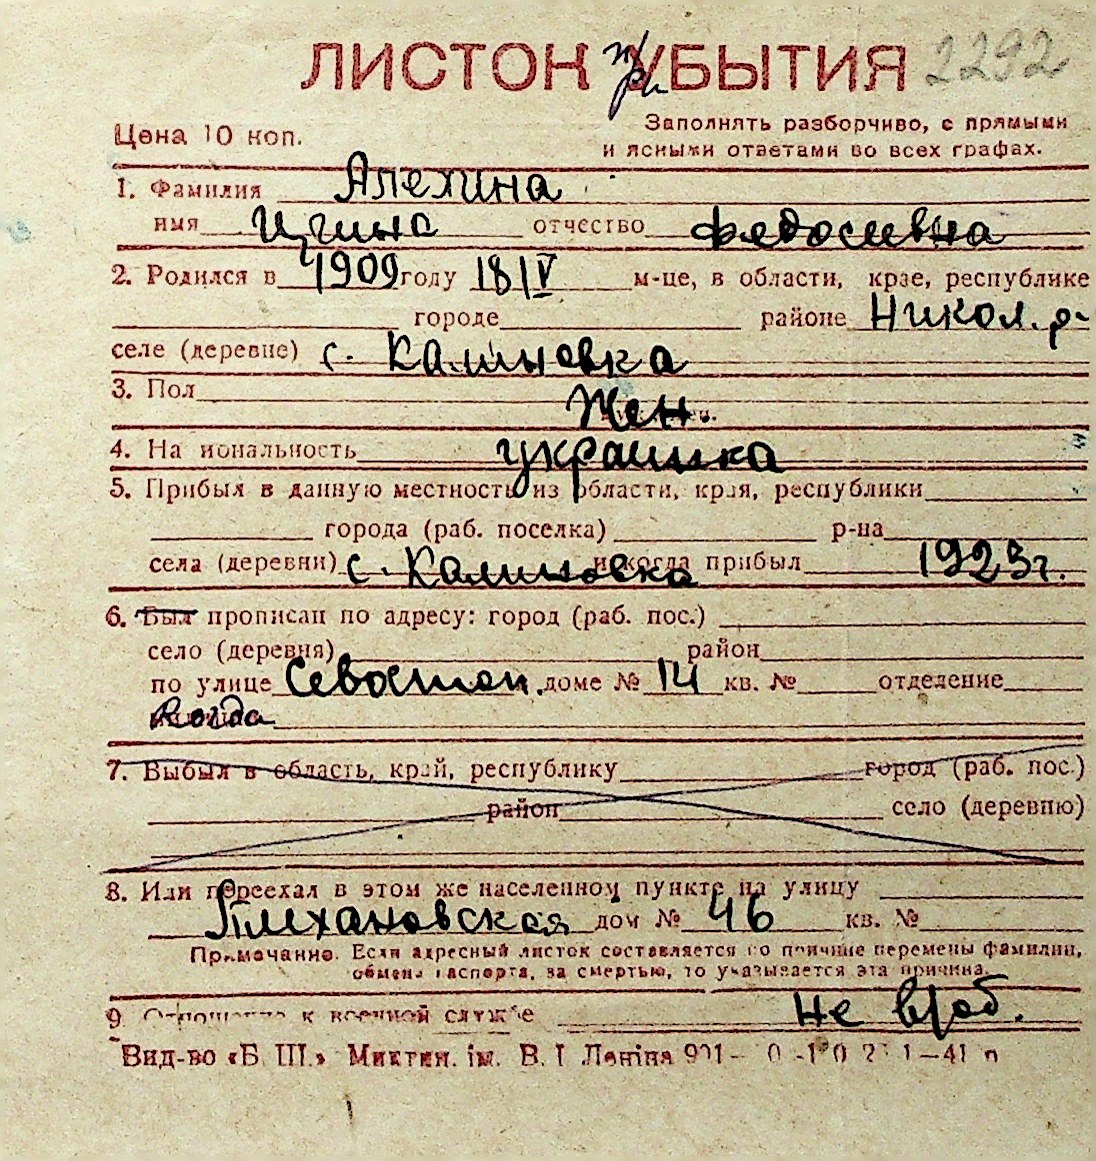 ЛИСТОК при УБЫТИЯ 2292
Цена 10 коп.
Заполнять разборчиво, с прямыми
и ясными ответами во всех графах.
1. Фамилия Алехина
имя отчество Федосиевна
2. Родился в 1909 году 18 IV м-це, в области, крае, республике
городе районе Никол. р-
селе (деревне) с. Калиновка
3. Пол Жен.
4. На иональность украинка
5. Прибыл в данную местность из области, края, республики
города (раб. поселка) р-на
села (деревни) с. Калиновка и когда прибыл 1923г.
6. Был прописан по адресу: город (раб. пос.)
село (деревня) район
по улице Севастоп. доме № 14 кв. № отделение
Когда
7. Выбыл в область, край, республику город (раб. пос.)
район село (деревню)
8. Или переехал в этом же населенном пункте на улицу
Плехановская дом № 46 кв. №
Примечание. Если адресный листок составляется по причине перемены фамилии,
обмена паспорта, за смертью, то указывается эта причина.
9. Отношение к военной службе Не
Вид-во «Б. Ш.» Миктип. ім. В. І Леніна